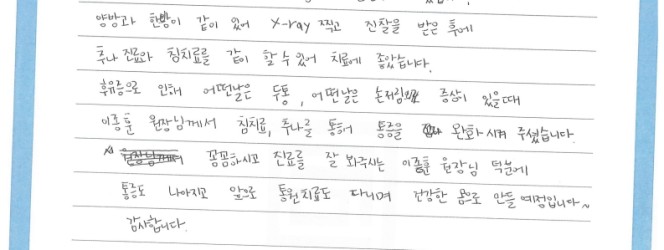 양방과 한방이 같이 있어 X-ray 찍고 진찰을 받은 후에
추나 진료와 침치료를 같이 할 수 있어 치료에 좋았습니다.
후유증으로 인해 어떤날은 두통, 어떤날은 손저림 증상이 있을때
이종훈 원장님께서 침치료, 추나를 통해 통증을 완화 시켜 주셨습니다.
꼼꼼하시고 진료를 잘 봐주시는 이종훈 원장님 덕분에
통증도 나아지고 앞으로 통원치료도 다니며 건강한 몸으로 만들 예정입니다~
감사합니다.